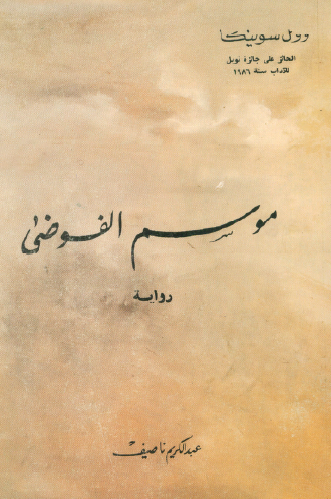 وول سوينكا
الحائز على جائزة نوبل
للآداب سنة ١٩٨٦
موسم الفوضى
رواية
عبدالكريم ناصيف